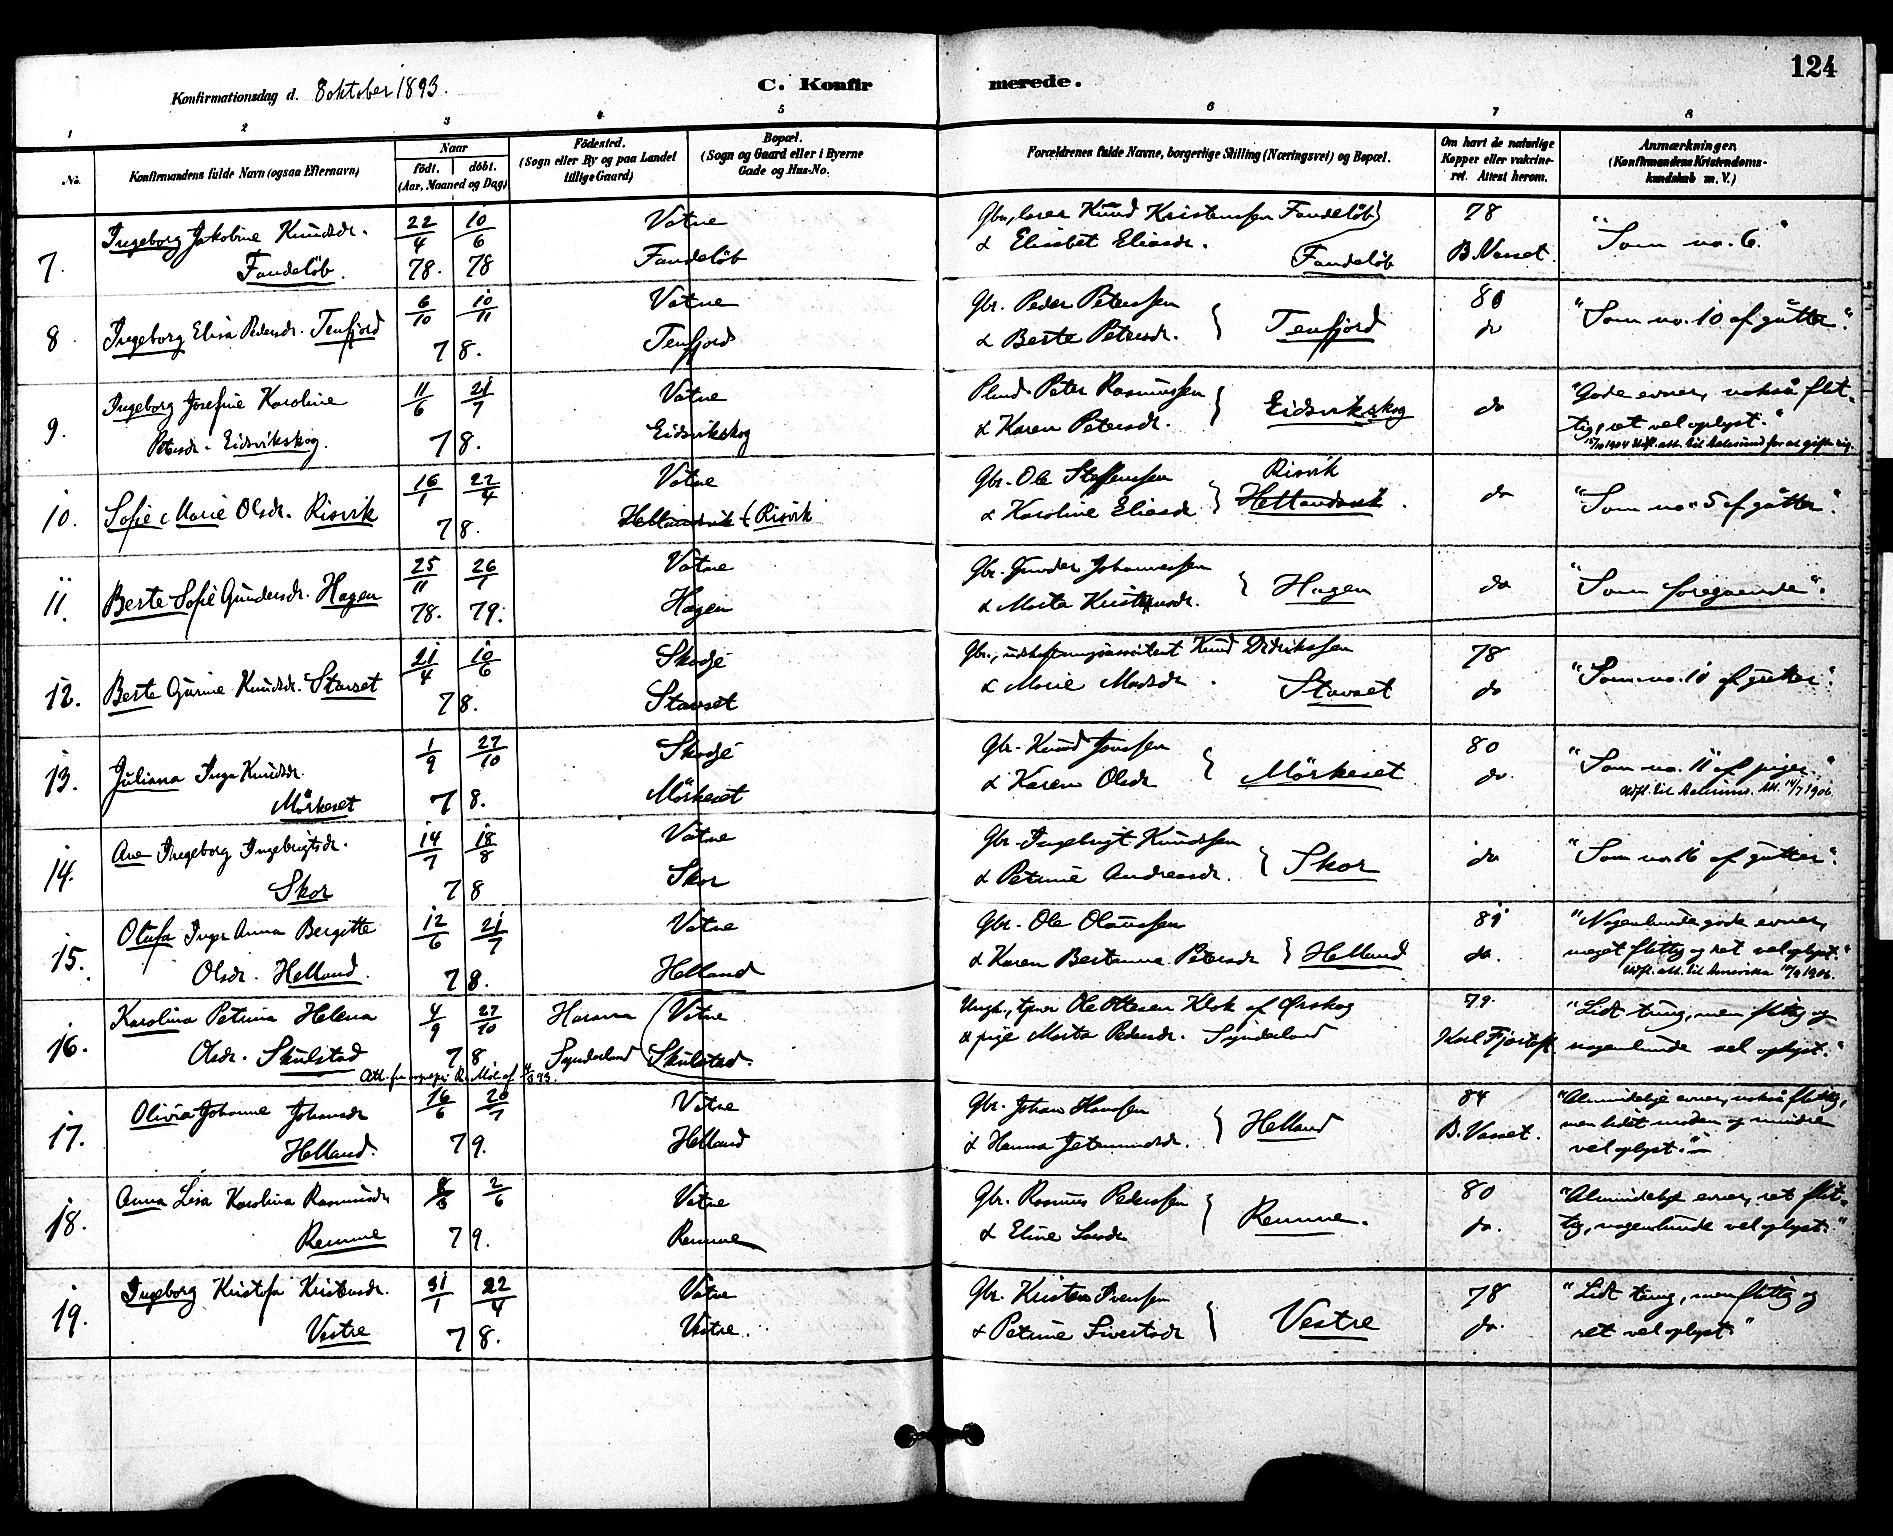 124
Konfirmationsdag d. 8 oktober 1893.
C. Konfir merede.
1 2 3 4 5 6 7 8
No.
Konfirmandens fulde Navn (ogsaa Efternavn)
Naar
födt. döbt.
(Aar, Maaned og Dag)
Födested.
(Sogn eller By og paa Landet
tillige Gaard)
Bopæl.
(Sogn og Gaard eller i Byerne
Gade og Hus-No.
Forældrenes fulde Navne, borgerlige Stilling (Næringsvei) og Bopæl.
Om havt de naturlige
Kopper eller vakcine-
ret. Attest herom.
Anmærkninger.
(Konfirmandens Kristendoms-
kundskab m. V.)
7. Ingeborg Jakobine Knudsdr. 22/4 10/6 Vatne Knud Kristenssen Fandelöb 78
Fandelöb. 78. 78 Fandelöb & Elisabet Eliasdr. Fandelöb B. Vasset. "Som no. 6."
8. Ingeborg Elisa Pedersdr. Tenfjord 6/10 10/11 Vatne Gbr. Peder Peterssen 80
78. Tenfjord & Berte Petersdr. Tenfjord do "Som no. 10 af gutter".
9. Ingeborg Josefine Karoline 11/6 21/7 Vatne Peter Rasmussen "Gode evner, också flit-
Petersdr. Eidsvikskog. 78. Eidsvikskog & Karen Petersdr. Eidsvikskog do tig, ret vel oplyst."
1904 Udfl. att. til Aalesund for at gifte sig.
10. Sofie Marie Olsdr. Risvik 16/1 22/4 Vatne Gbr. Ole Steffenssen Risvik
78. Hellandsvik Risvik & Karoline Eliasdr Hellandsvik. do "Som no. 5 af gutter".
11. Berte Sofie Gundersdr. Hagen 25/11 26/1 Vatne Gbr. Gunder Johannessen
78. 79. Hagen & Marta Kristensdr. Hagen do "Som foregaaende".
12. Berte Gurine Knudsdr. Stavset 21/4 10/6 Skodje Gbr., Knud Didrikssen 78
78. Stavset & Marie Madsdr. Stavset do "Som no. 10 af gutter".
13. Juliana Inga Knudsdr. 1/9 27/10 Skodje Gbr. Knud Jonssen 80
Mörkeset 78. Mörkeset & Karen Olsdr Mörkeset do "Som no. 11 af piger."
Udfl. til Aalesund. Att. 14/7 1906.
14. Ane Ingeborg Ingebrigtsdr. 14/7 18/8 Vatne Gbr. Ingebrigt Knudssen
Skor 78 Skor & Petrine Andreasdr. Skor do "Som no. 16 af gutter".
15. Olufa Inga Anna Bergitte 12/6 21/7 Vatne Gbr. Ole Olaussen 81 "Nogenlunde gode evner,
Olsdr. Helland. 78. Helland & Karen Bertanna Petersdr Helland do. meget flittig og ret vel oplyst."
Udfl. att. til Amerika 1906.
16. Karolina Petrina Helena 4/9 27/10 Harama Vatne Ole Ottesen Klok af Ørskog 79. "Lidt tung, men flittig og
Olsdr. Skulstad 78 Synderland Skulstad. & pige Marta Pedersdr. Synderland Karl Fjörtoft nogenlunde vel oplyst."
17. Olivia Johanne Johansdr 16/6 20/7 Vatne Gbr. Johan Hanssen 84 "Almindelige evner, også flittig,
Helland. 79. Helland & Hanna Jetmundsdr. Helland B. Vasset. men lidet moden og mindre
vel oplyst."
18. Anna Lisa Karolina Rasmusdr 2/6 Vatne Gbr. Rasmus Pederssen 80 "Almindelige evner, ret flit-
Remme 79. Remme & Eline Larsdr Remme. do. tig, nogenlunde vel oplyst."
19. Ingeborg Kristofa Kristensdr. 31/1 22/4 Vatne Gbr. Kristen Iverssen 78 "Lidt tung, men flittig og
Vestre 78. Vestre. & Petrine Sivertsdr Vestre do. ret vel oplyst."